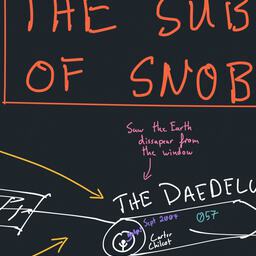 THE SUB
OF SNOB
Saw the Earth
dissapear from
the window
THE DAEDELU
Sept 2004
057
Carter
Chilcot